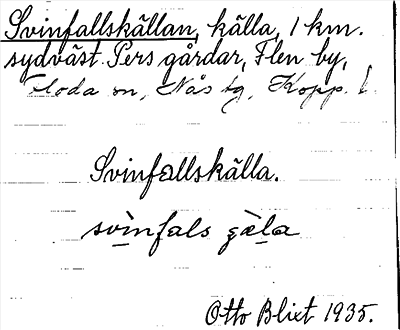 Svinfallskällan, källa, 1 km.
sydväst Pers gårdar, Flen by,
Floda sn, Nås tg, Kopp. l.
Svinfallskälla.
svinfals
Otto Blixt 1935.